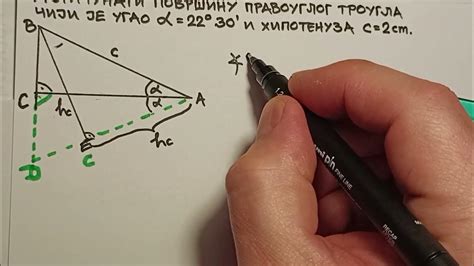 ПОВРШИНУ ПРАВОУГЛОГ ТРОУГЛА
ЧИЈИ ЈЕ УГАО α=22°30' И ХИПОТЕНУЗА c=2cm.
B
c
C
α
α
A
hc
hc
C
D
FINE LINE